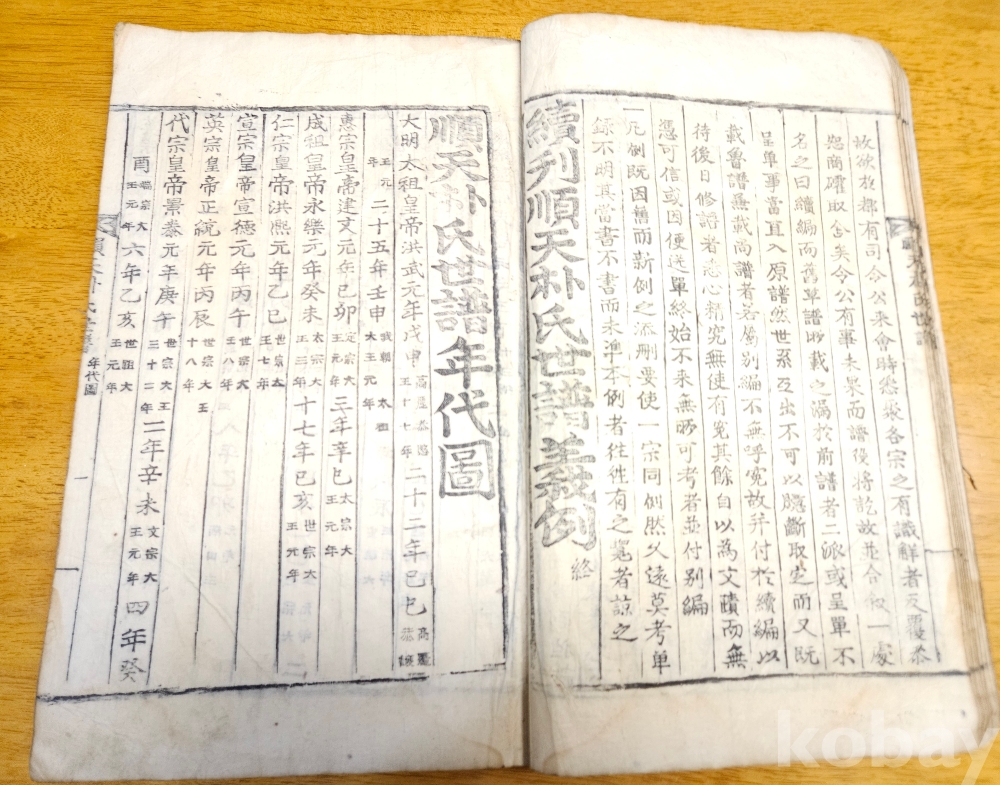 故欲於都有司令公來會時悉裒各宗之有識鮮者反覆叅
恕商確取舍矣令公有事未果而譜役將訖故並合叙一處
名之曰續編而舊單譜所載之漏於前譜者二派或呈單不
呈單事當直入原譜然世系互出不可以臆斷取㝎而又旣
載魯譜無載尚譜者若屬別編不無呼寃故并付於續編以
待後日修譜者悉心精究無使有寃其餘自以爲文蹟而無
憑可信或因便送單終始不來無所可考者並付別編
一凡例旣因舊而新例之添刪要使一宗同例然久遠莫考單
錄不明其當書不書而未準本例者徃徃有之寃者諒之
續刋順天朴氏世譜義例 終
順天朴氏世譜年代圖
大明太祖皇帝洪武元年戊申 高麗恭愍王十七年 二十二年己巳 高麗恭讓
王元年 二十五年壬申 我朝太祖大王元年
惠宗皇帝建文元年己卯 定宗大王元年 三年辛巳 太宗大王元年
成祖皇帝永樂元年癸未 太宗大王三年 十七年己亥 世宗大王元年
仁宗皇帝洪熙元年乙巳 世宗大王七年
宣宗皇帝宣德元年丙午 世宗大王八年
英宗皇帝正統元年丙辰 世宗大王十八年
代宗皇帝景泰元年庚午 世宗大王三十二年 二年辛未 文宗大王元年 四年癸
酉 端宗大王元年 六年乙亥 世祖大王元年
順天朴氏世譜 年代圖 一
kobay